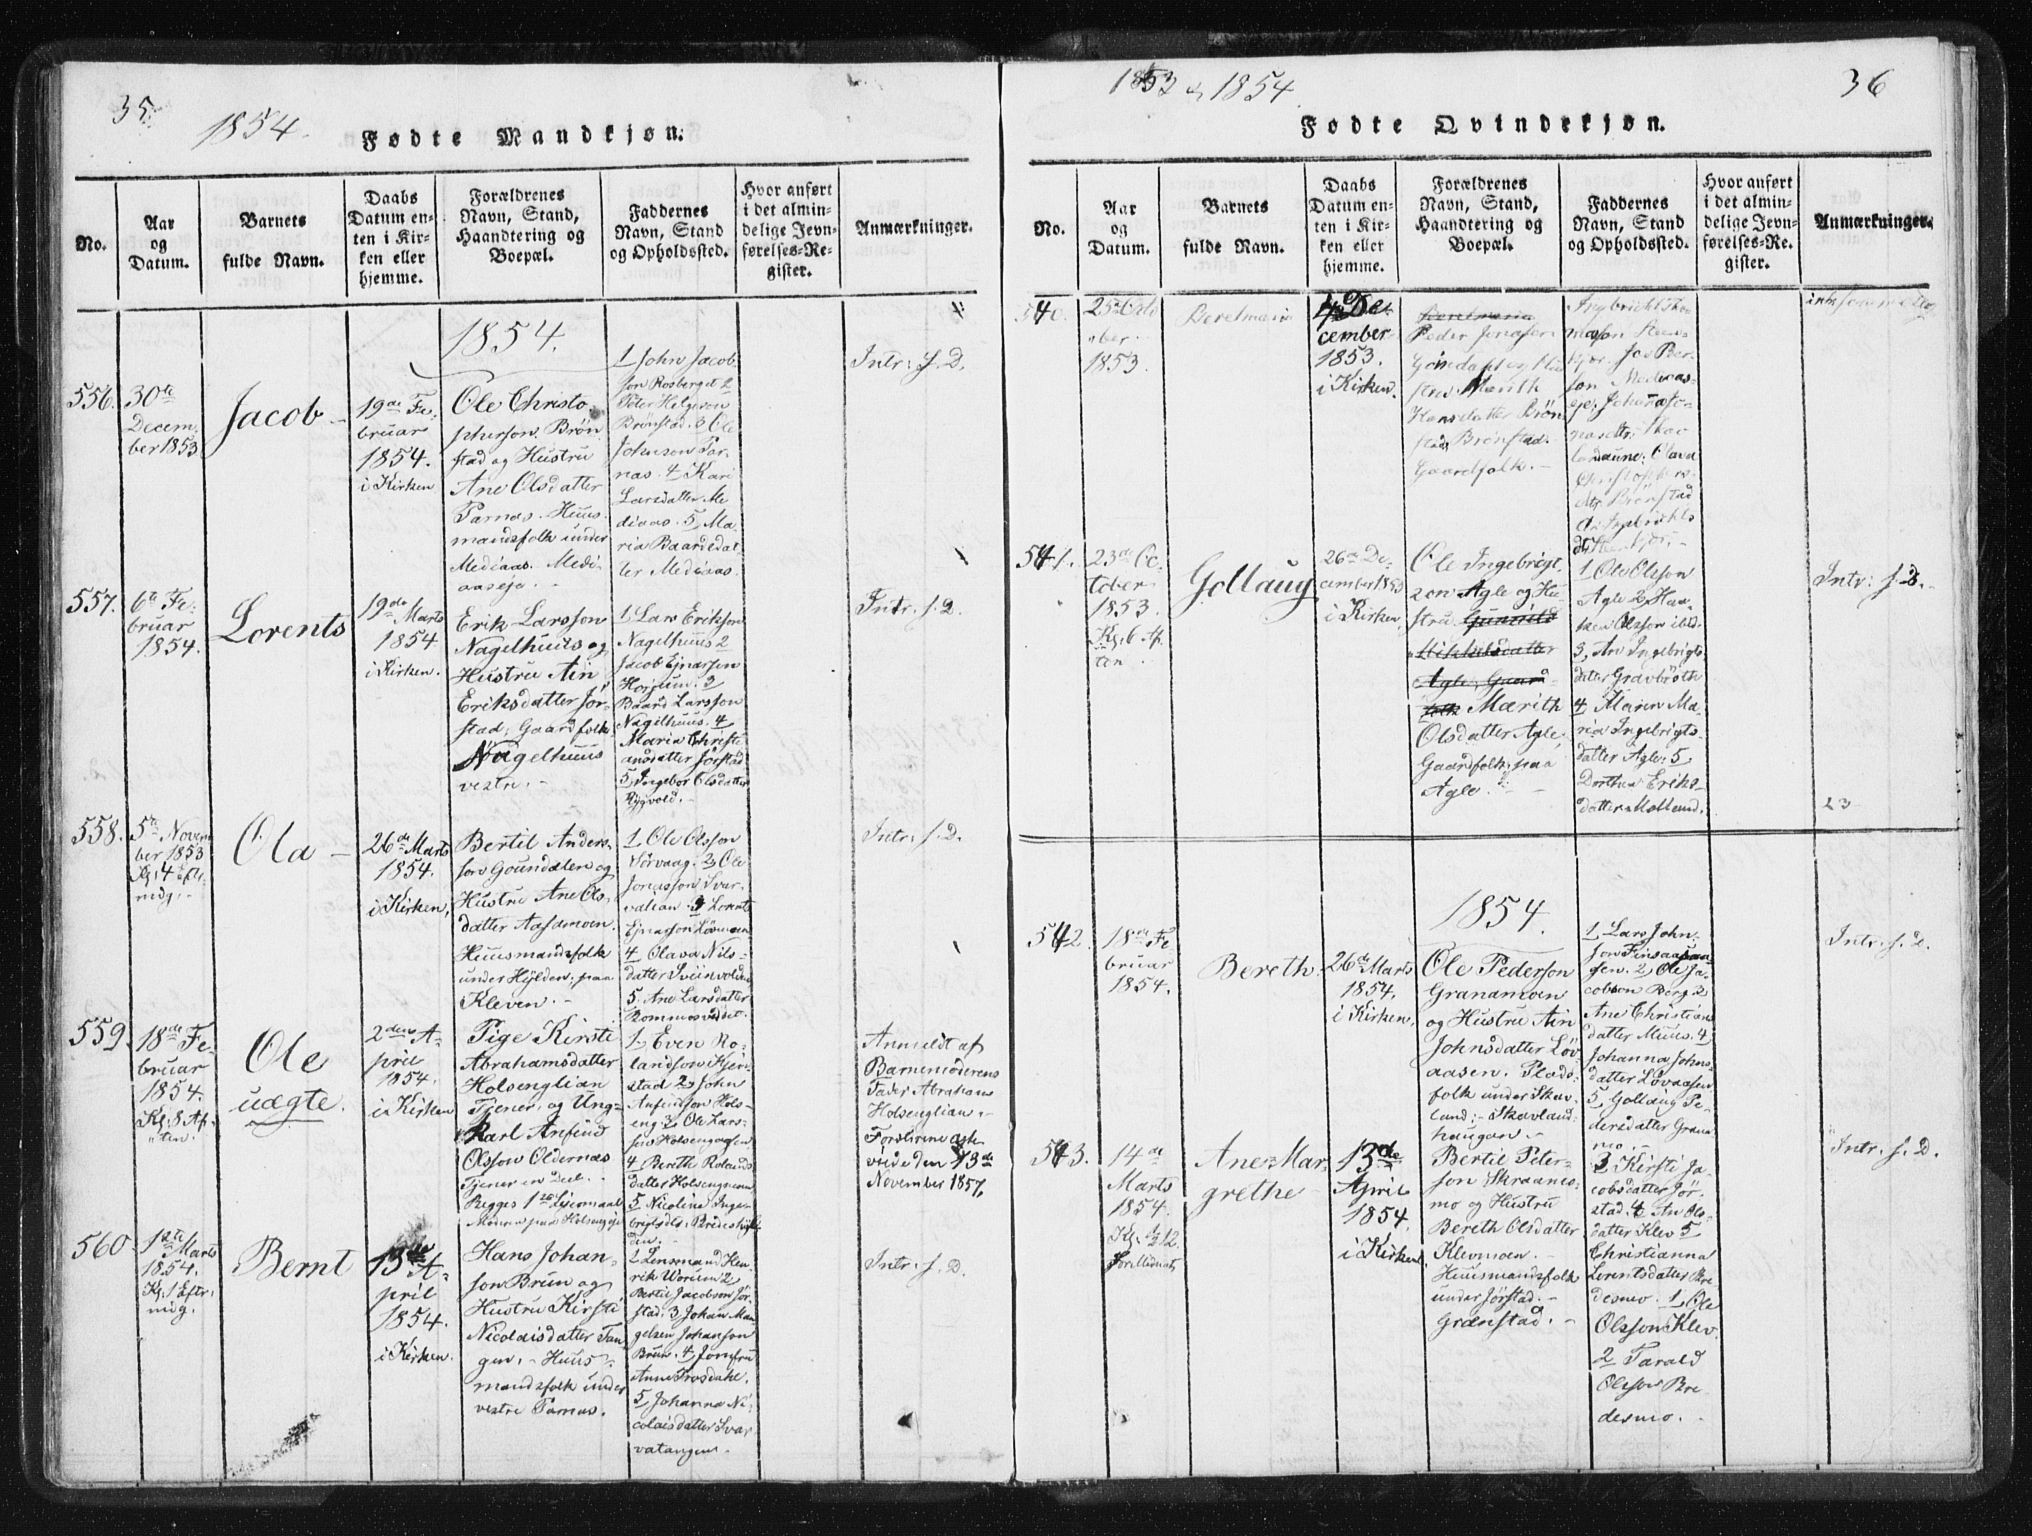 35
1854.
Fødte Mandkjøn.
No.
Aar
og
Datum.
Barnets
fulde Navn.
Daabs
Datum en-
ten i Kir-
ken eller
hjemme.
Forældrenes
Navn, Stand,
Haandtering og
Boepæl.
Faddernes
Navn, Stand
og Opholdssted.
Hvor anført
i det almin-
delige Jevn-
førelses-Re-
gister.
Anmærkninger.
1854.
556.
30te
Decem-
ber 1853
Jacob
19de Fe-
bruar
1854.
i Kirken
Ole Christo-
pherson Brön-
stad og Hustru
Ane Olsdatter
Parnas. Huus-
mandsfolk under
Mediaas. Medi-
aaseje.
1 John Jacob-
son Rosberget 2
Peter Helgeson
Brönstad. 3 Ole
Johnson Par-
nas. 4 Kari
Larsdatter Me-
diaas. 5, Ma-
ria Baardsdat-
ter Mediaas.
Intr: f. D.
557.
6te Fe-
bruar
1854.
Lorents
19de Marts
1854
i Kirken.
Erik Larsson
Nagelhuus og
Hustru An
Eriksdatter Jör-
stad, Gaardfolk
Nagelhuus
vestre.
1 Lars Erikson
Nagelhuus 2
Jacob Ejnarson
Horjum. 3
Baard Larsson
Nagelhuus. 4
Maria Christi-
ansdatter Jörstad
5, Ingebor Olsdatter
Rygvold.
Intr: f. D.
558.
5te Novem-
ber 1853
Kl: 4 Efter-
midg.
Ola
26de Marts
1854.
i Kirken.
Bertil Anders-
son Goundalen og
Hustru Ane Ols-
datter Aasamoen.
Huusmandsfolk
under Hylden, paa
Kleven.
1. Ole Olsson
Sörvaag. 2, Ole
Jonasson Svar-
valian. 3 Lorents
Ejnarson Lövmoen
4 Olava Nils-
datter Sveinvolden
5. Ane Larsdatter
Intr: f. D.
559.
18de Fe-
bruar
1854.
Kl: 8 Af-
ten.
Ole
uægte.
2den A-
pril
1854.
i Kirken
Pige Kirsti
Abrahamsdatter
Holsenglian
Tjener, og Ung-
Karl Anfind
Olsson Oldernæs
Tjener
Begges 1ste Lejermaal
1, Even Ro-
landson Kjeri-
stad 2, John
Anfindson Hols-
eng. 3, Ole Lars-
son Holsengmoen
4 Bereth Rolands-
datter Holsengmoen
5 Nicoline Inge-
Anmeldt af
Barnemoderens
Fader Abraham
Holsenglian.
Forældrene ægte-
viede den 13de
November 1857.
560.
1ste Marts
1854.
Kl: 1 Eftr-
midg.
Bernt
13de A-
pril
1854.
i Kirken.
Hans Johan-
son Brun og
Hustru Kirsti
Nicolaisdatter Tan-
gen. Huus-
mandsfolk under
vestre Parnas.
1 Lensmand Hen-
rik Worum 2
Bertil Jacobson Jör-
stad. 3 Johan Man-
gelsen Johanson
Brun. 4 Jomfru
Anne Trosdahl.
5 Johanna Ni-
colaisdatter Svar-
vatangen.
Intr: f. D.
1853 & 1854.
36
Fødte Qvindekjøn.
No.
Aar
og
Datum.
Barnets
fulde Navn.
Daabs
Datum en-
ten i Kir-
ken eller
hjemme.
Forældrenes
Navn, Stand,
Haandtering og
Boepæl.
Faddernes
Navn, Stand
og Opholdssted.
Hvor anført
i det almin-
delige Jevn-
førelses-Re-
gister.
Anmærkninger.
540.
25de Octo-
ber
1853.
Beretmaria
4de De-
cember
1853.
i Kirken.
Beretmaria
Peder Jonasson
Hansdatter Brön-
stad, Brönstad.
Gaardfolk.
541.
23de Oc-
tober
1853.
Kl: 6 Af-
ten
Gollaug
26de De-
cember 1853
i Kirken.
Ole Ingebrigt-
zon Agle og Hu-
stru Gunnild
Mikkelsdatter
Agle, Gaard-
folk Marith
Olsdatter Agle,
Gaardfolk, paa
Agle.
1 Ole Olsson
Agle 2, Haa-
ken Olsson ibid.
3, An Ingebrigts-
datter Gravbröth
4 Maren Ma-
ria Ingebrigts-
datter Agle. 5
Dorthea Eriks-
datter Moltund.
Intr: f. D.
23
1854.
542.
18de Fe-
bruar
1854.
Bereth
26de Marts
1854.
i Kirken.
Ole Pederson
Granamoen
og Hustru An
Johnsdatter Löv-
aasen. Plads-
folk under Skav-
land, Skavland-
haugan.
1 Lars John-
son Finsaasaa-
sen. 2, Ole Ja-
cobson Berg. 3
Ane Christians-
datter Muus. 4
Johanna Johns-
datter Lövaasen
5, Gollaug Pe-
dersdatter Grana-
mo.
Intr: f. D.
543.
14de
Marts
1854.
Kl. ½12
Formidag
Ane Mar-
grethe
13de
April
1854.
i Kirken.
Bertil Peter-
son Skraanes-
mo og Hustru
Bereth Olsdatter
Klevmoen.
Huusmandsfolk
under Jörstad.
Grænstad.
3 Kirsti Ja-
cobsdatter Jör-
stad. 4 An Ols-
datter Klev 5
Christianna
Lorentsdatter Bre-
desmo. 1, Ole
Olsson Klev.
2 Tarald
Olsson Bre-
desmo.
Intr: f. D.